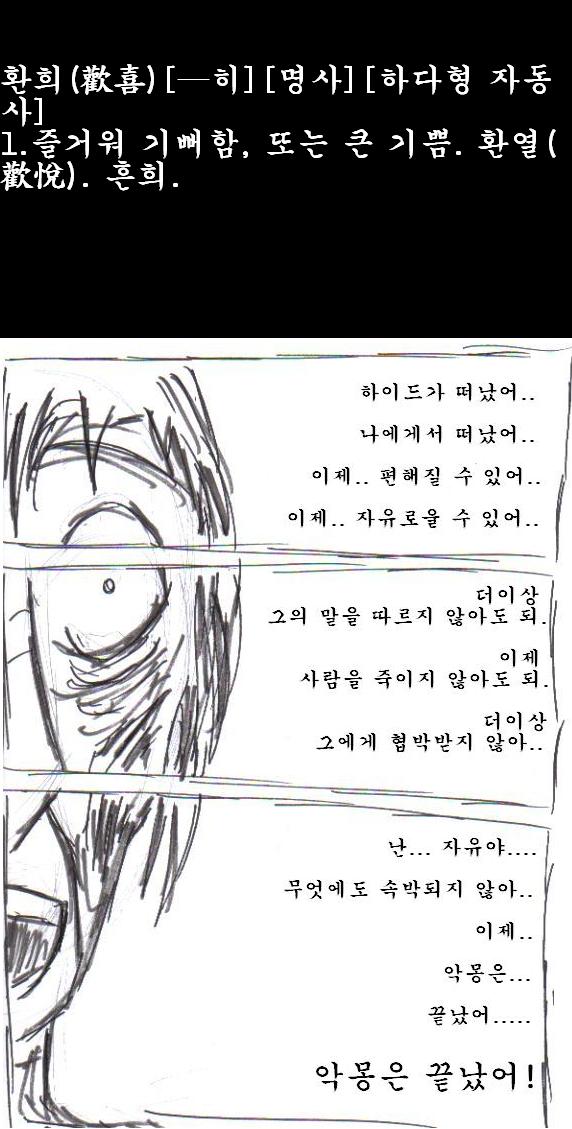 환희(歡喜)[―히][명사][하다형 자동
사]
1.즐거워 기뻐함, 또는 큰 기쁨. 환열(
歡悅). 흔희.
하이드가 떠났어..
나에게서 떠났어..
이제.. 편해질 수 있어..
이제.. 자유로울 수 있어..
더이상
그의 말을 따르지 않아도 되.
이제
사람을 죽이지 않아도 되.
더이상
그에게 협박받지 않아..
난... 자유야....
무엇에도 속박되지 않아..
이제..
악몽은...
끝났어.....
악몽은 끝났어!